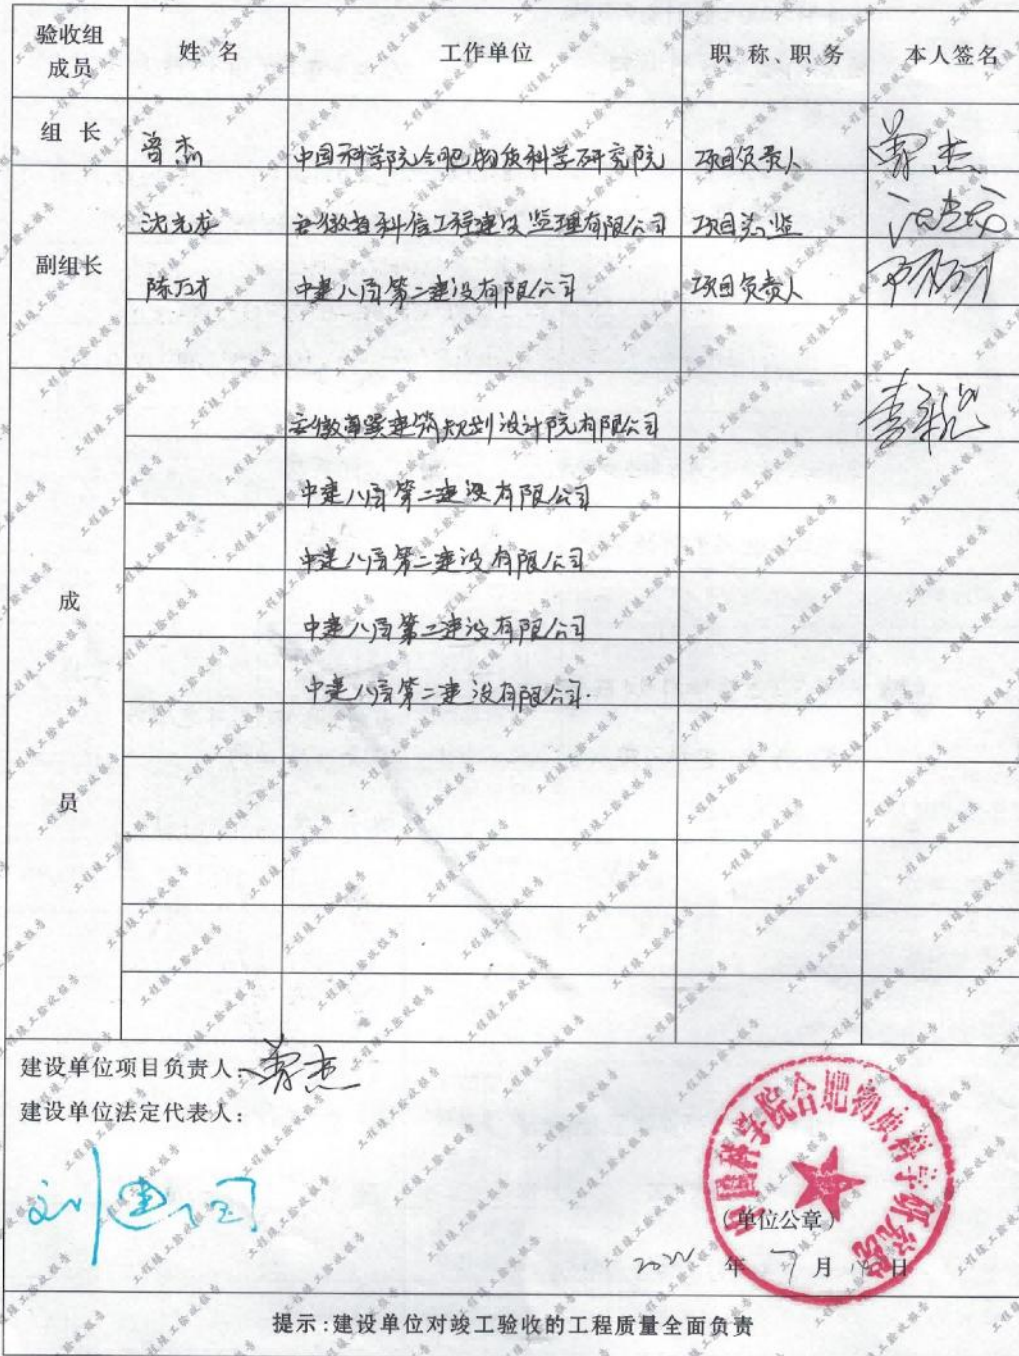 验收组成员 姓 名 工作单位 职 称、职 务 本人签名
组 长 曾杰 中国科学院合肥物质科学研究院 项目负责人 曾杰
沈光龙 安徽省科信工程建设监理有限公司 项目总监
副组长
陈万才 中建八局第二建设有限公司 项目负责人 陈万才
安徽草溪建筑规划设计院有限公司
中建八局第二建设有限公司
中建八局第二建设有限公司
成
中建八局第二建设有限公司
中建八局第二建设有限公司.
员
建设单位项目负责人: 曾杰
建设单位法定代表人:
刘建国
中国科学院合肥物质科学研究院
(单位公章)
2022 年 7 月 日
提示:建设单位对竣工验收的工程质量全面负责
工程竣工验收报告